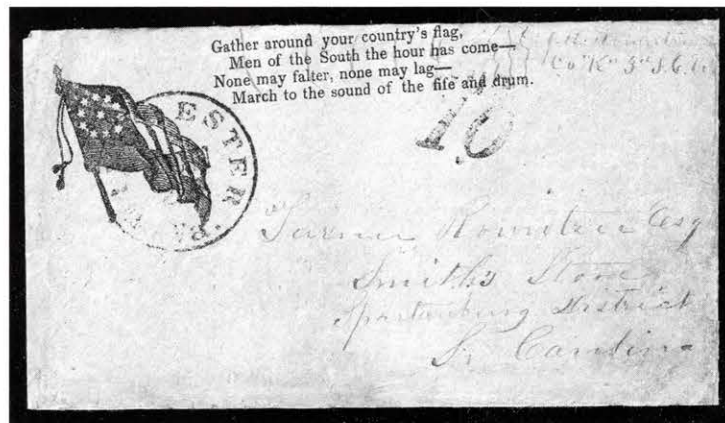 Gather around your country's flag,
Men of the South the hour has come—
None may falter, none may lag—
March to the sound of the fife and drum.
Co "K" 3d S.C.
10
ESTER
Turner Rowntree Esq
Smith's Store
Spartanburg District
So Carolina